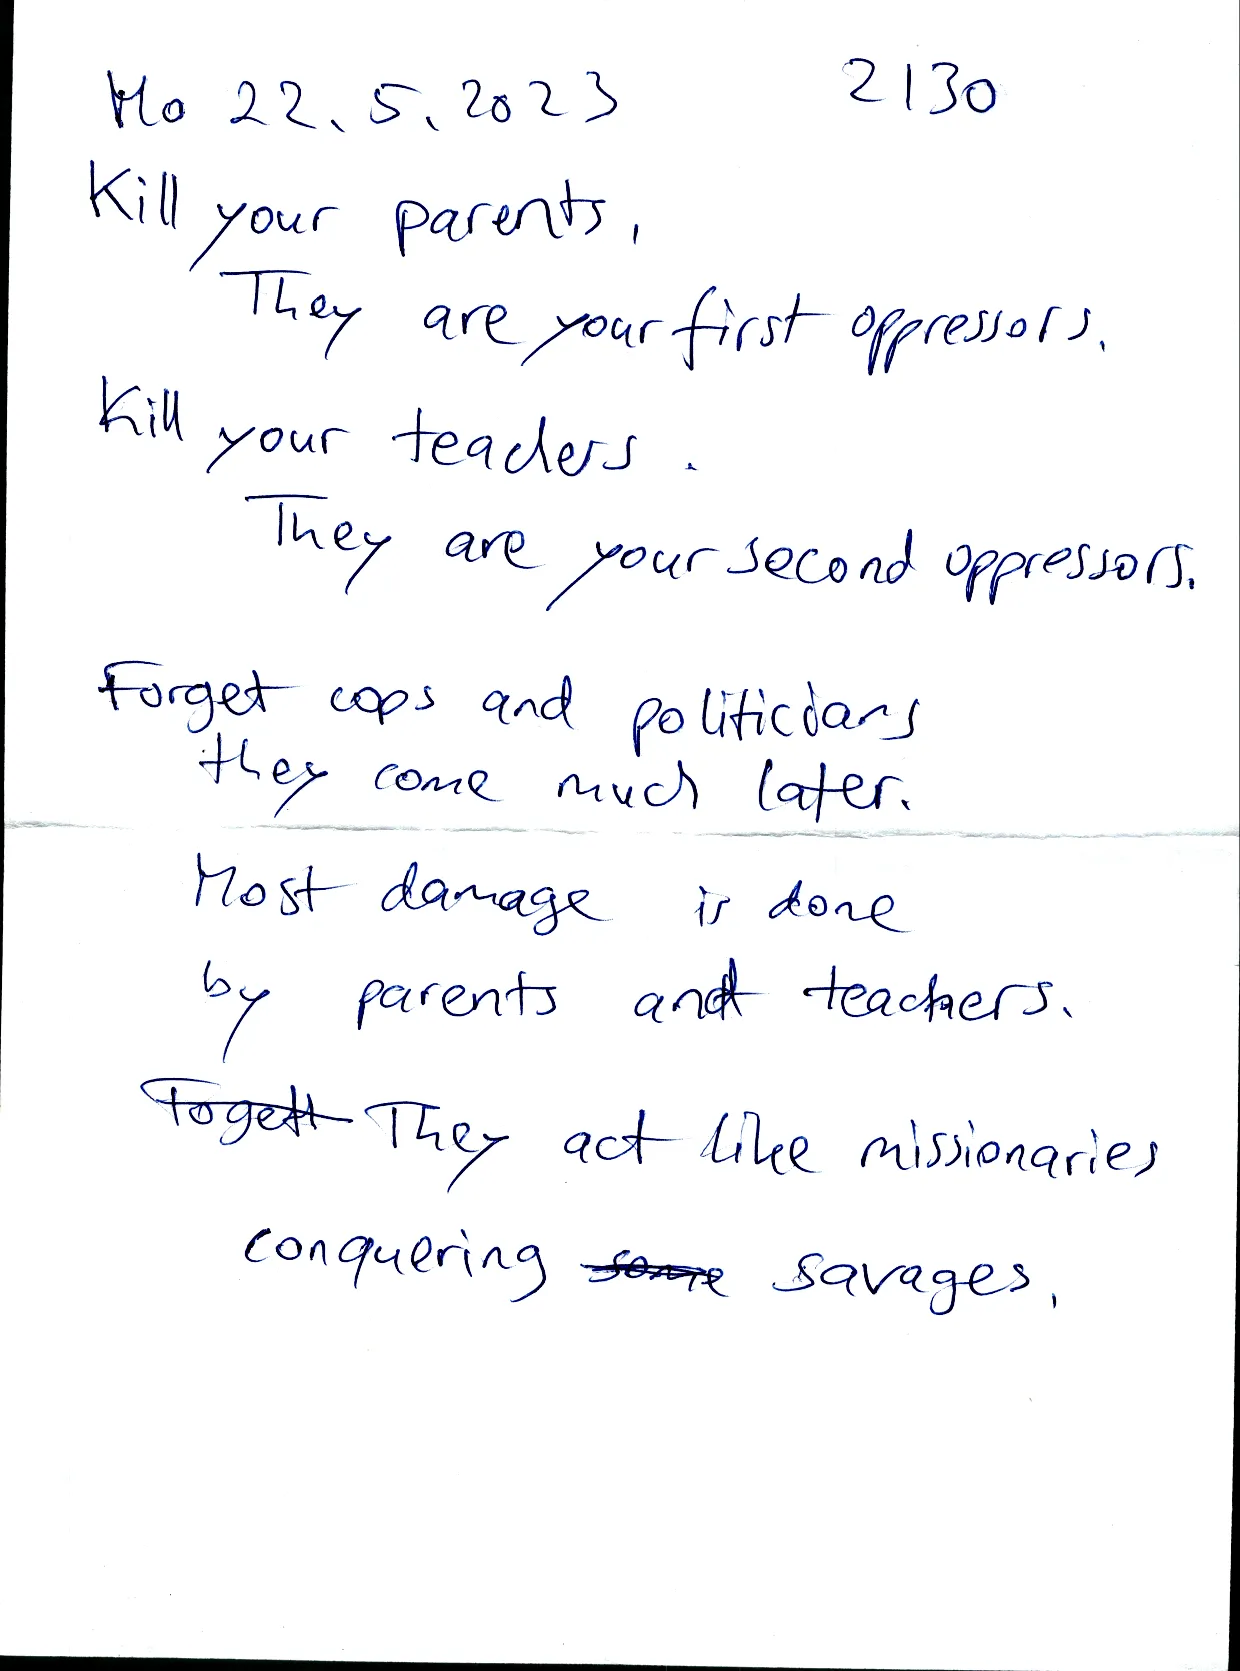 Mo 22.5.2023 2130
Kill your parents.
They are your first oppressors.
Kill your teachers.
They are your second oppressors.
Forget cops and politicians
they come much later.
Most damage is done
by parents and teachers.
Togett They act like missionaries
conquering some savages.